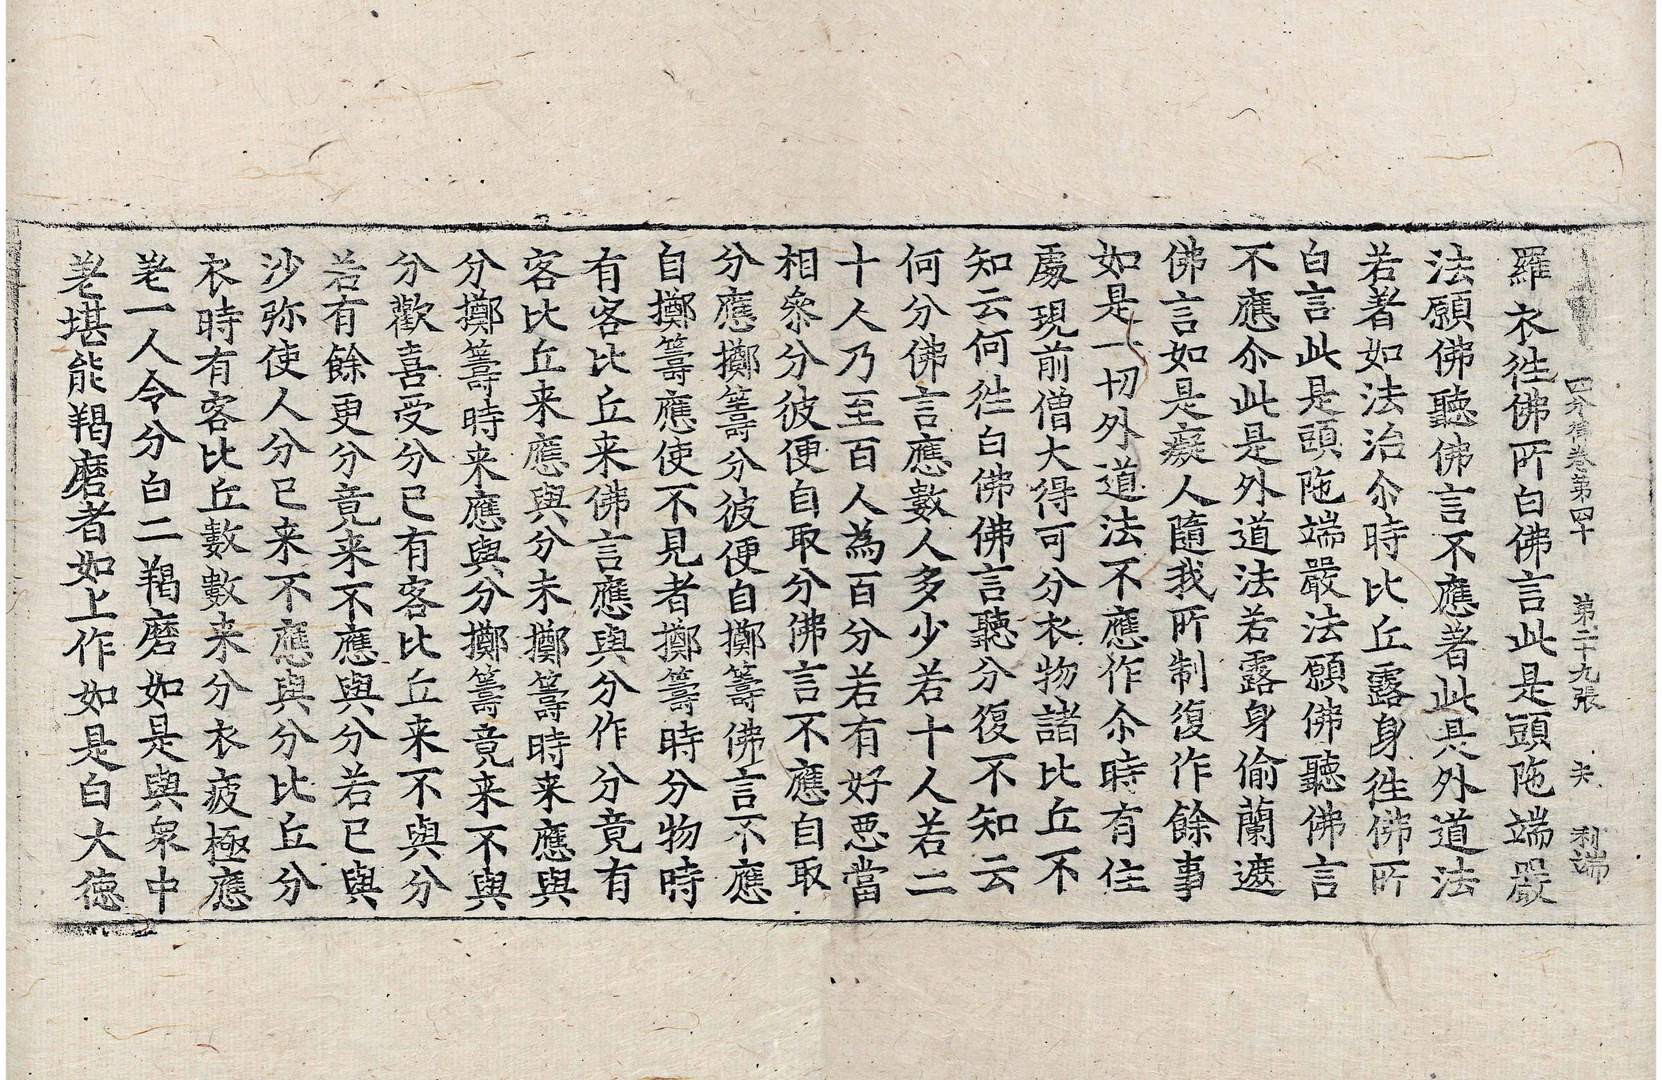 四分律卷第四十 第二十九張 夫 利端
羅衣徃佛所白佛言此是頭陁端嚴
法願佛聽佛言不應著此是外道法
若著如法治尒時比丘露身徃佛所
白言此是頭陁端嚴法願佛聽佛言
不應尒此是外道法若露身偷蘭遮
佛言如是癡人隨我所制復作餘事
如是一切外道法不應作尒時有住
處現前僧大得可分衣物諸比丘不
知云何徃白佛佛言聽分復不知云
何分佛言應數人多少若十人若二
十人乃至百人為百分若有好惡當
相叅分彼便自取分佛言不應自取
分應擲籌分彼便自擲籌佛言不應
自擲籌應使不見者擲籌時分物時
有客比丘来佛言應與分作分竟有
客比丘来應與分未擲籌時来應與
分擲籌時来應與分擲籌竟来不與
分歡喜受分已有客比丘来不與分
若有餘更分竟来不應與分若已與
沙弥使人分已来不應與分比丘分
衣時有客比丘數數来分衣疲極應
差一人令分白二羯磨如是與衆中
差堪能羯磨者如上作如是白大德